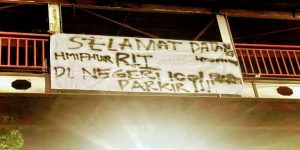 SELAMAT DATANG
HMIFHUR RIT
DI NEGERI 1001
PARKIR!!!